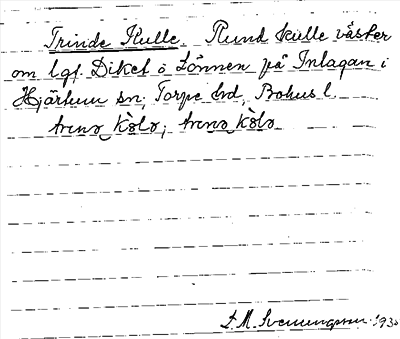 Trinde Kulle. Rund kulle väster
om lgf. Diket ö Lönnen på Inlagan i
Hjärtum sn; Torpe hd, Bohus l.
trinə kɔlə; trinə kɔlə
S. M. Svenungsson 1930